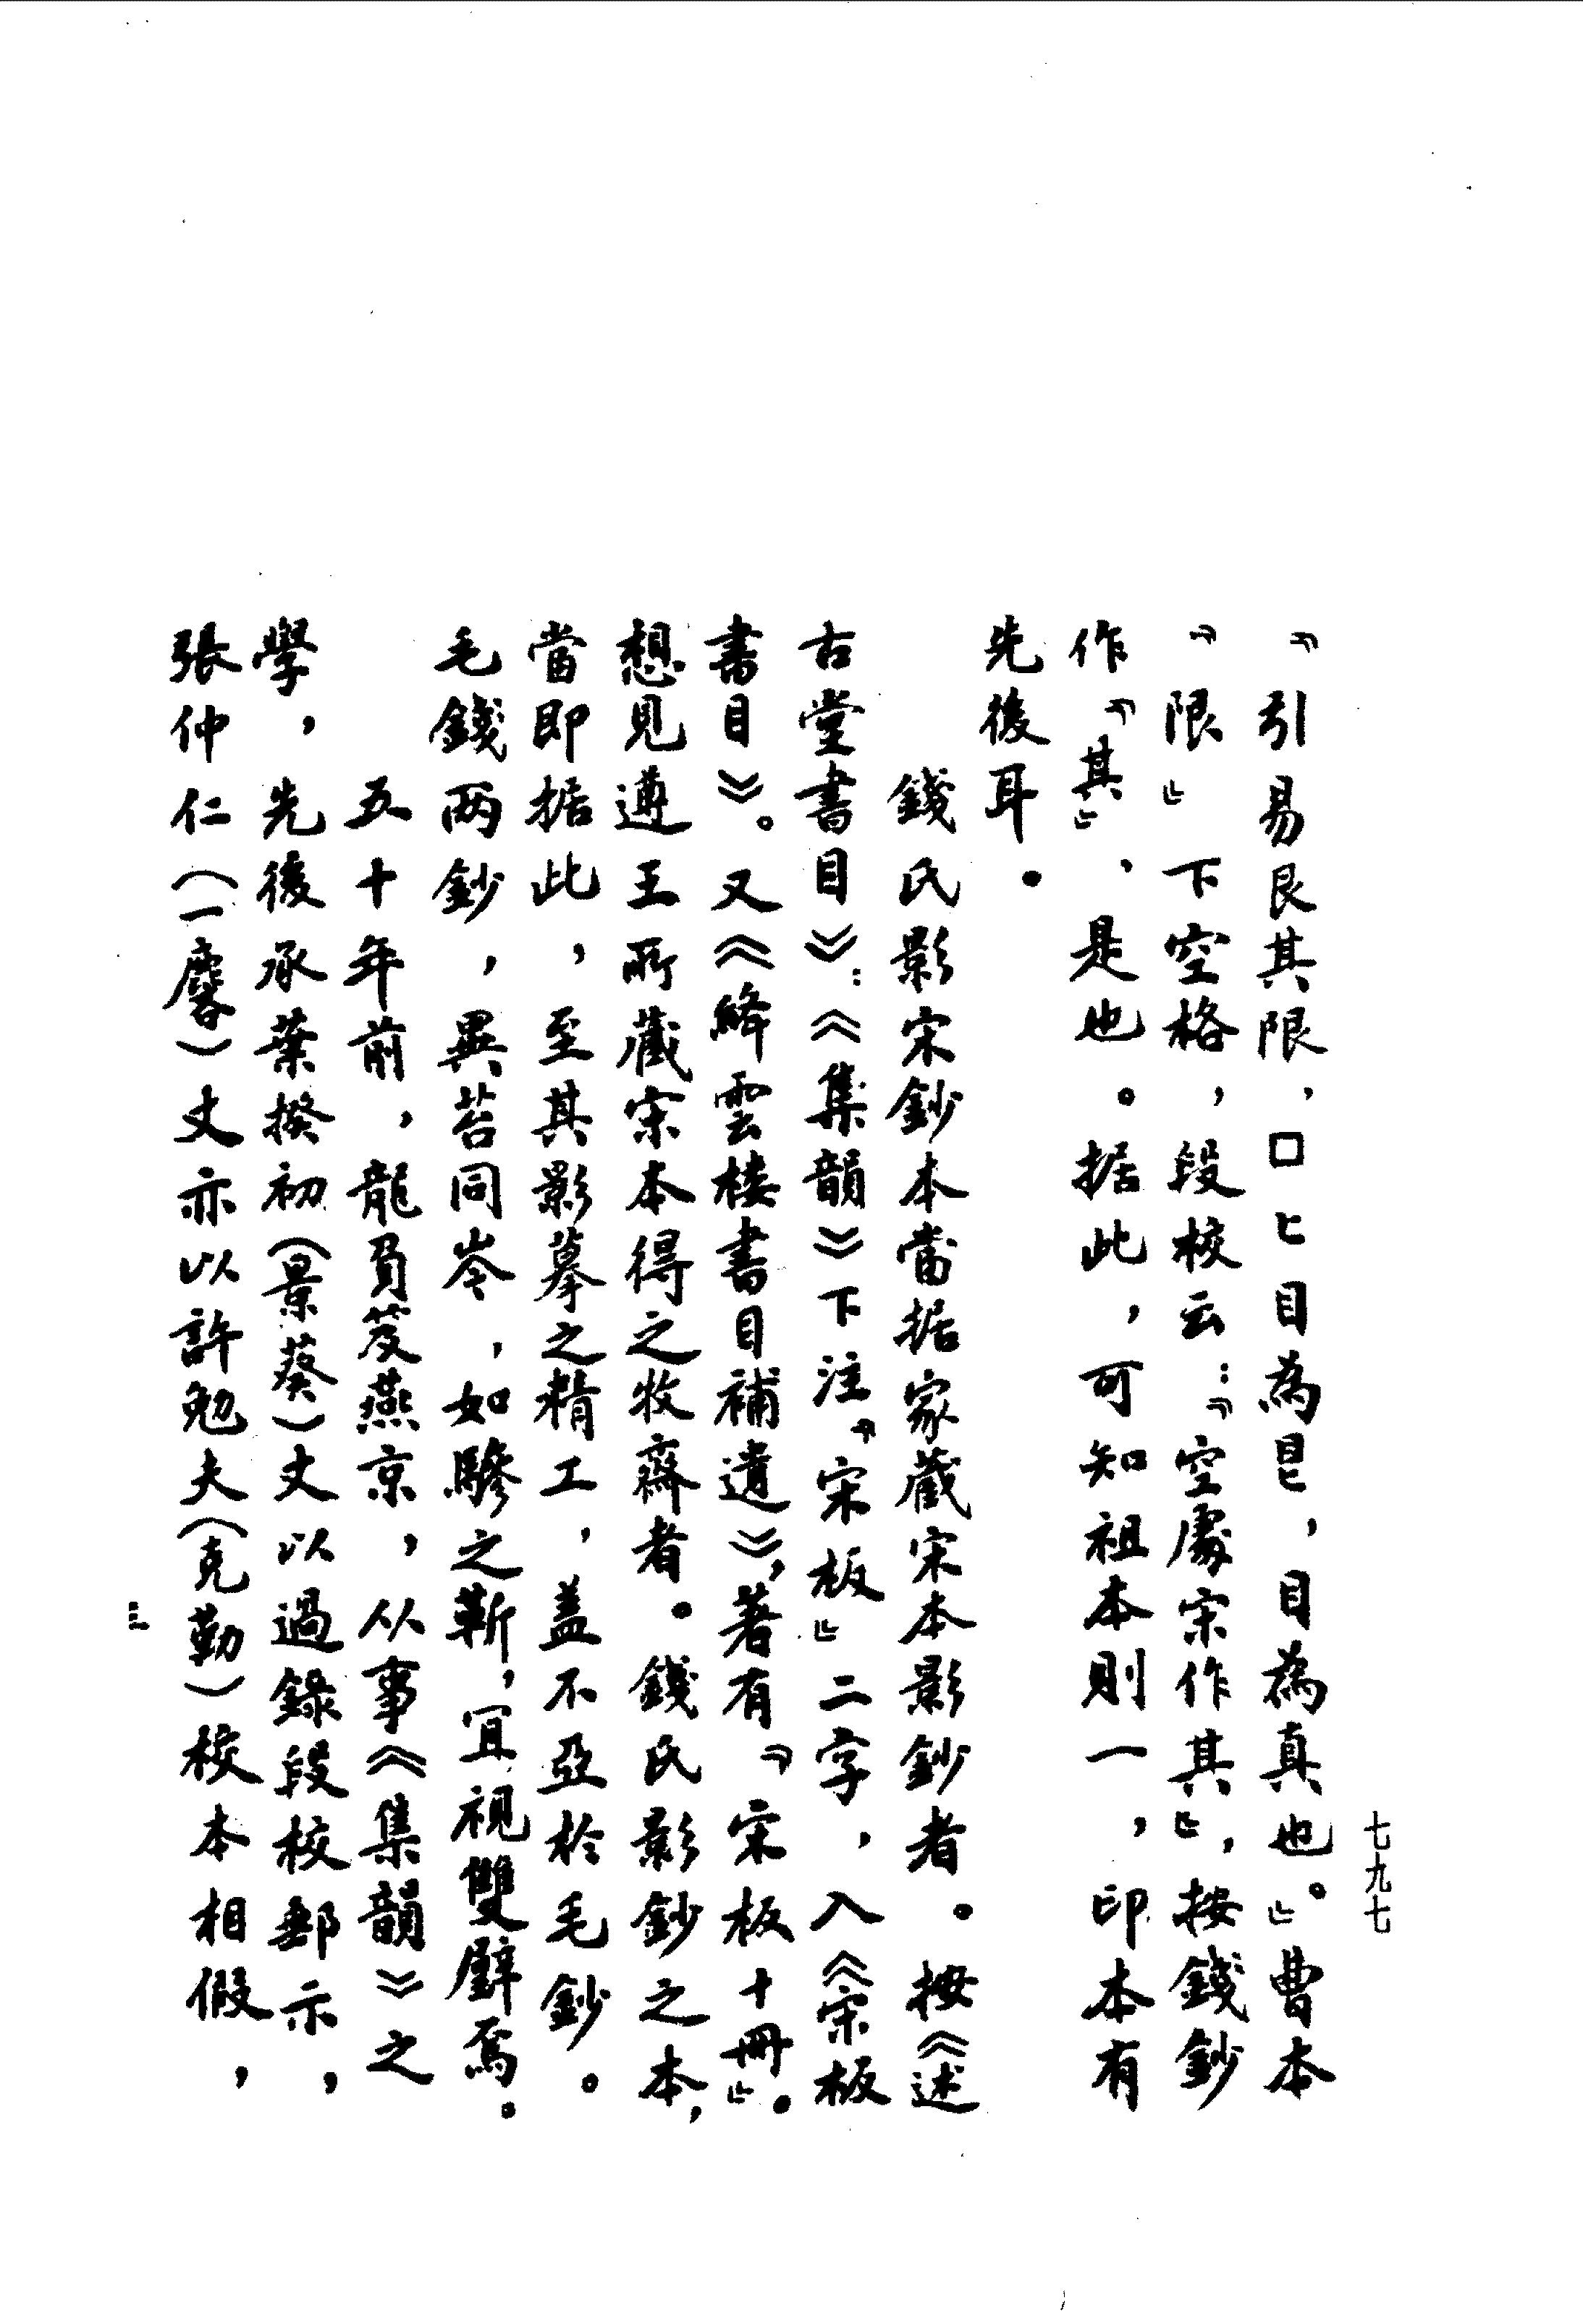 「引易艮其限，□匕目為㫐，目為真也。」曹本
「限」下空格，段校云：「空處宋作其」，按錢鈔
作「其」，是也。据此，可知祖本則一，印本有
先後耳。
錢氏影宋鈔本當据家藏宋本影鈔者。按《述
古堂書目》：《集韻》下注「宋板」二字，入《宋板
書目》。又《絳雲楼書目補遺》，著有「宋板十冊」。
想見遵王所藏宋本得之牧齋者。錢氏影鈔之本，
當即据此，至其影摹之精工，盖不亞於毛鈔。
毛錢两鈔，異苔同岑，如驂之靳，宜視雙璧焉。
五十年前，龍負笈燕京，从事《集韻》之
學，先後承葉揆初（景葵）丈以過錄段校郵示，
張仲仁（一麐）丈亦以許勉夫（克勤）校本相假，
七九七
三